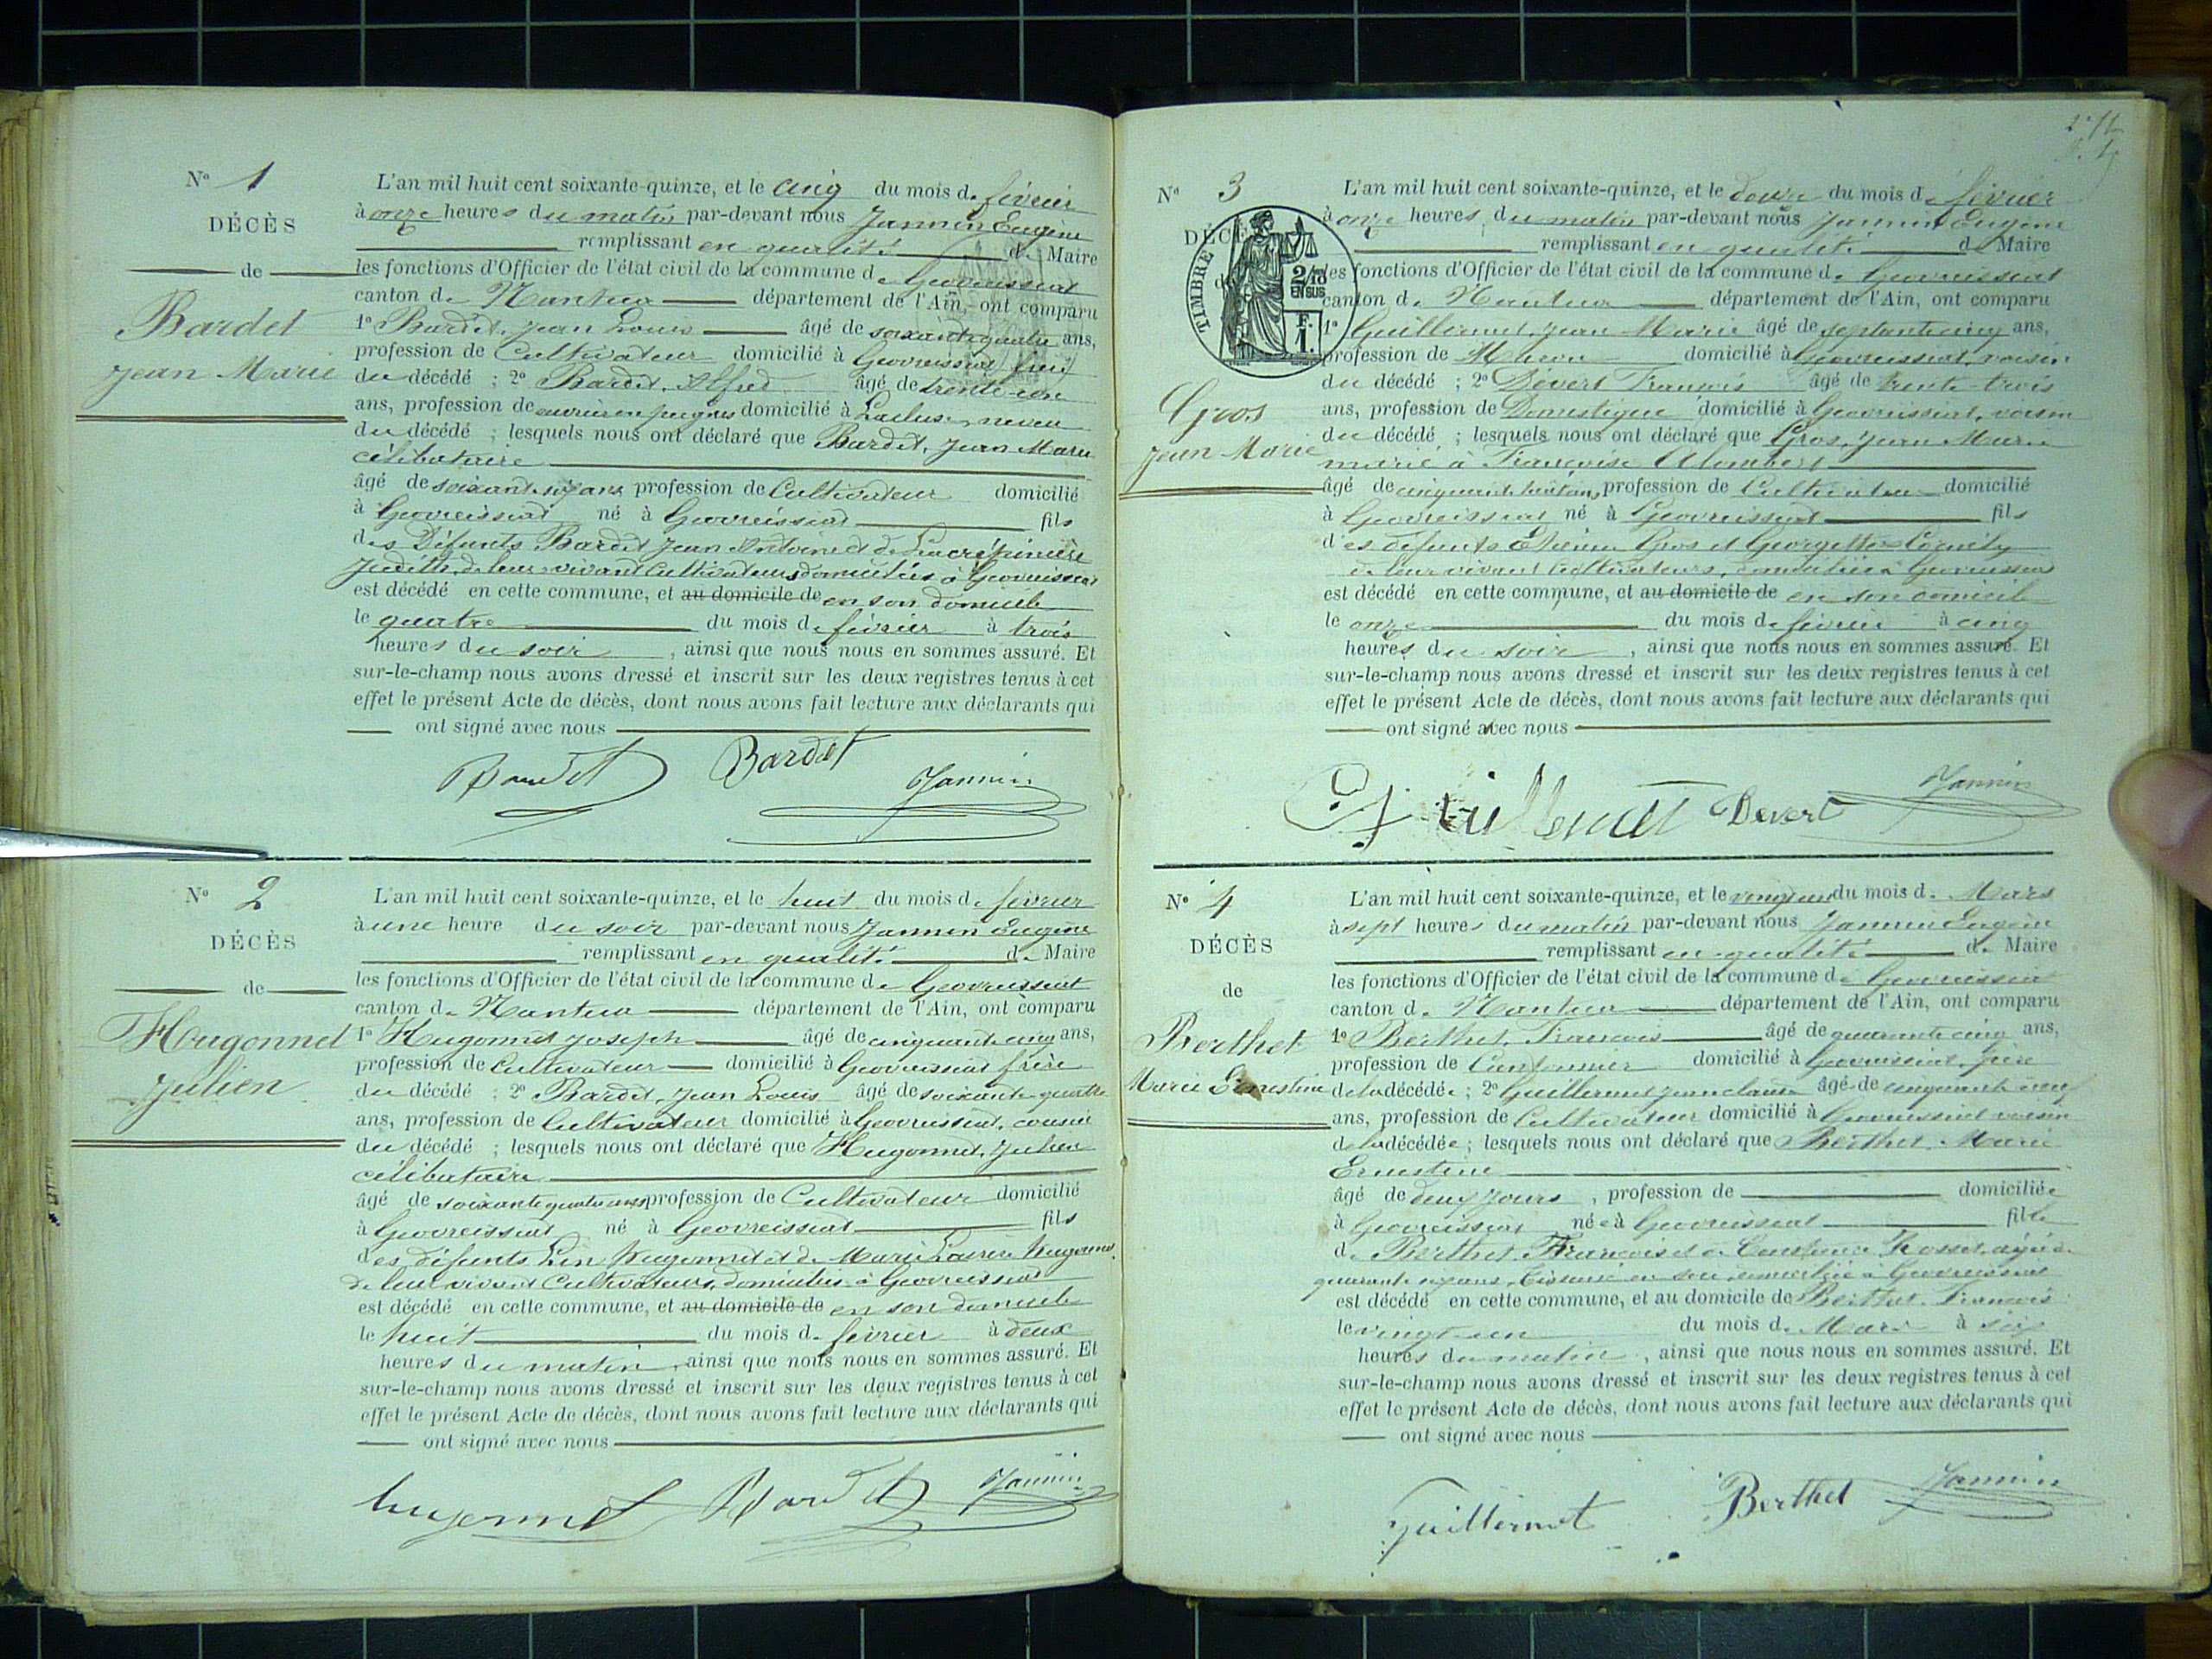 N° 1
DÉCÈS
de
Bardet
Jean Marie
L'an mil huit cent soixante-quinze, et le cinq du mois de février
à onze heures du matin par-devant nous Jannin Eugène
remplissant en qualité de Maire
les fonctions d'Officier de l'état civil de la commune de Geovreissiat
canton de Nantua département de l'Ain, ont comparu
1° Bardet, Jean Louis âgé de soixante quatre ans,
profession de Cultivateur domicilié à Geovreissiat
du décédé ; 2° Bardet, Alfred âgé de trente-un
ans, profession de ouvrier en peignes domicilié à Lacluse, neveu
du décédé ; lesquels nous ont déclaré que Bardet, Jean Marie
célibataire
âgé de soixante six ans profession de Cultivateur domicilié
à Geovreissiat né à Geovreissiat fils
des Défunts Bardet Jean Antoine et de
Judith, de leur vivant Cultivateurs domiciliés à Geovreissiat
est décédé en cette commune, et au domicile de en son domicile
le quatre du mois de février à trois
heures du soir, ainsi que nous nous en sommes assuré. Et
sur-le-champ nous avons dressé et inscrit sur les deux registres tenus à cet
effet le présent Acte de décès, dont nous avons fait lecture aux déclarants qui
ont signé avec nous
Bardet Bardet Jannin
N° 2
DÉCÈS
de
Hugonnet
Julien
L'an mil huit cent soixante-quinze, et le huit du mois de février
à une heure du soir par-devant nous Jannin Eugène
remplissant en qualité de Maire
les fonctions d'Officier de l'état civil de la commune de Geovreissiat
canton de Nantua département de l'Ain, ont comparu
1° Hugonnet Joseph âgé de cinquante cinq ans,
profession de Cultivateur domicilié à Geovreissiat frère
du décédé ; 2° Bardet, Jean Louis âgé de soixante quatre
ans, profession de Cultivateur domicilié à Geovreissiat, cousin
du décédé ; lesquels nous ont déclaré que Hugonnet, Julien
célibataire
âgé de soixante quatre ans profession de Cultivateur domicilié
à Geovreissiat né à Geovreissiat fils
des défunts Hugonnet et de Marie Hugonnet
de leur vivant Cultivateurs, domiciliés à Geovreissiat
est décédé en cette commune, et au domicile de en son domicile
le huit du mois de février à deux
heures du matin, ainsi que nous nous en sommes assuré. Et
sur-le-champ nous avons dressé et inscrit sur les deux registres tenus à cet
effet le présent Acte de décès, dont nous avons fait lecture aux déclarants qui
ont signé avec nous
hugonnet Bardet Jannin
N° 3
DÉCÈS
de
TIMBRE
2/10
EN SUS
F.
1.
Gros
Jean Marie
L'an mil huit cent soixante-quinze, et le douze du mois de février
à onze heures du matin par-devant nous Jannin Eugène
remplissant en qualité de Maire
les fonctions d'Officier de l'état civil de la commune de Geovreissiat
canton de Nantua département de l'Ain, ont comparu
1° Guillermet, Jean Marie âgé de septante cinq ans,
profession de domicilié à Geovreissiat, voisin
du décédé ; 2° Dévert François âgé de trente-trois
ans, profession de Domestique domicilié à Geovreissiat, voisin
du décédé ; lesquels nous ont déclaré que Gros, Jean Marie
marié à Françoise Alombert
âgé de cinquante huit ans, profession de Cultivateur domicilié
à Geovreissiat né à Geovreissiat fils
des défunts Etienne Gros et Georgette
de leur vivant Cultivateurs, domiciliés à Geovreissiat
est décédé en cette commune, et au domicile de en son domicile
le onze du mois de février à cinq
heures du soir, ainsi que nous nous en sommes assuré. Et
sur-le-champ nous avons dressé et inscrit sur les deux registres tenus à cet
effet le présent Acte de décès, dont nous avons fait lecture aux déclarants qui
ont signé avec nous
Devert Jannin
N° 4
DÉCÈS
de
Berthet
Marie Ernestine
L'an mil huit cent soixante-quinze, et le vingt un du mois de Mars
à sept heures du matin par-devant nous Jannin Eugène
remplissant en qualité de Maire
les fonctions d'Officier de l'état civil de la commune de Geovreissiat
canton de Nantua département de l'Ain, ont comparu
1° Berthet, François âgé de quarante cinq ans,
profession de Cantonnier domicilié à Geovreissiat, père
de la décédée ; 2° Guillermet Jean Claude âgé de cinquante neuf
ans, profession de Cultivateur domicilié à Geovreissiat voisin
de la décédée ; lesquels nous ont déclaré que Berthet Marie
Ernestine
âgé de deux jours, profession de domiciliée
à Geovreissiat née à Geovreissiat fille
de Berthet, François et de Rosset, âgée de
quarante ans, Tisseuse en soie domiciliée à Geovreissiat
est décédé en cette commune, et au domicile de Berthet François
le vingt un du mois de Mars à six
heures du matin, ainsi que nous nous en sommes assuré. Et
sur-le-champ nous avons dressé et inscrit sur les deux registres tenus à cet
effet le présent Acte de décès, dont nous avons fait lecture aux déclarants qui
ont signé avec nous
Guillermet Berthet Jannin